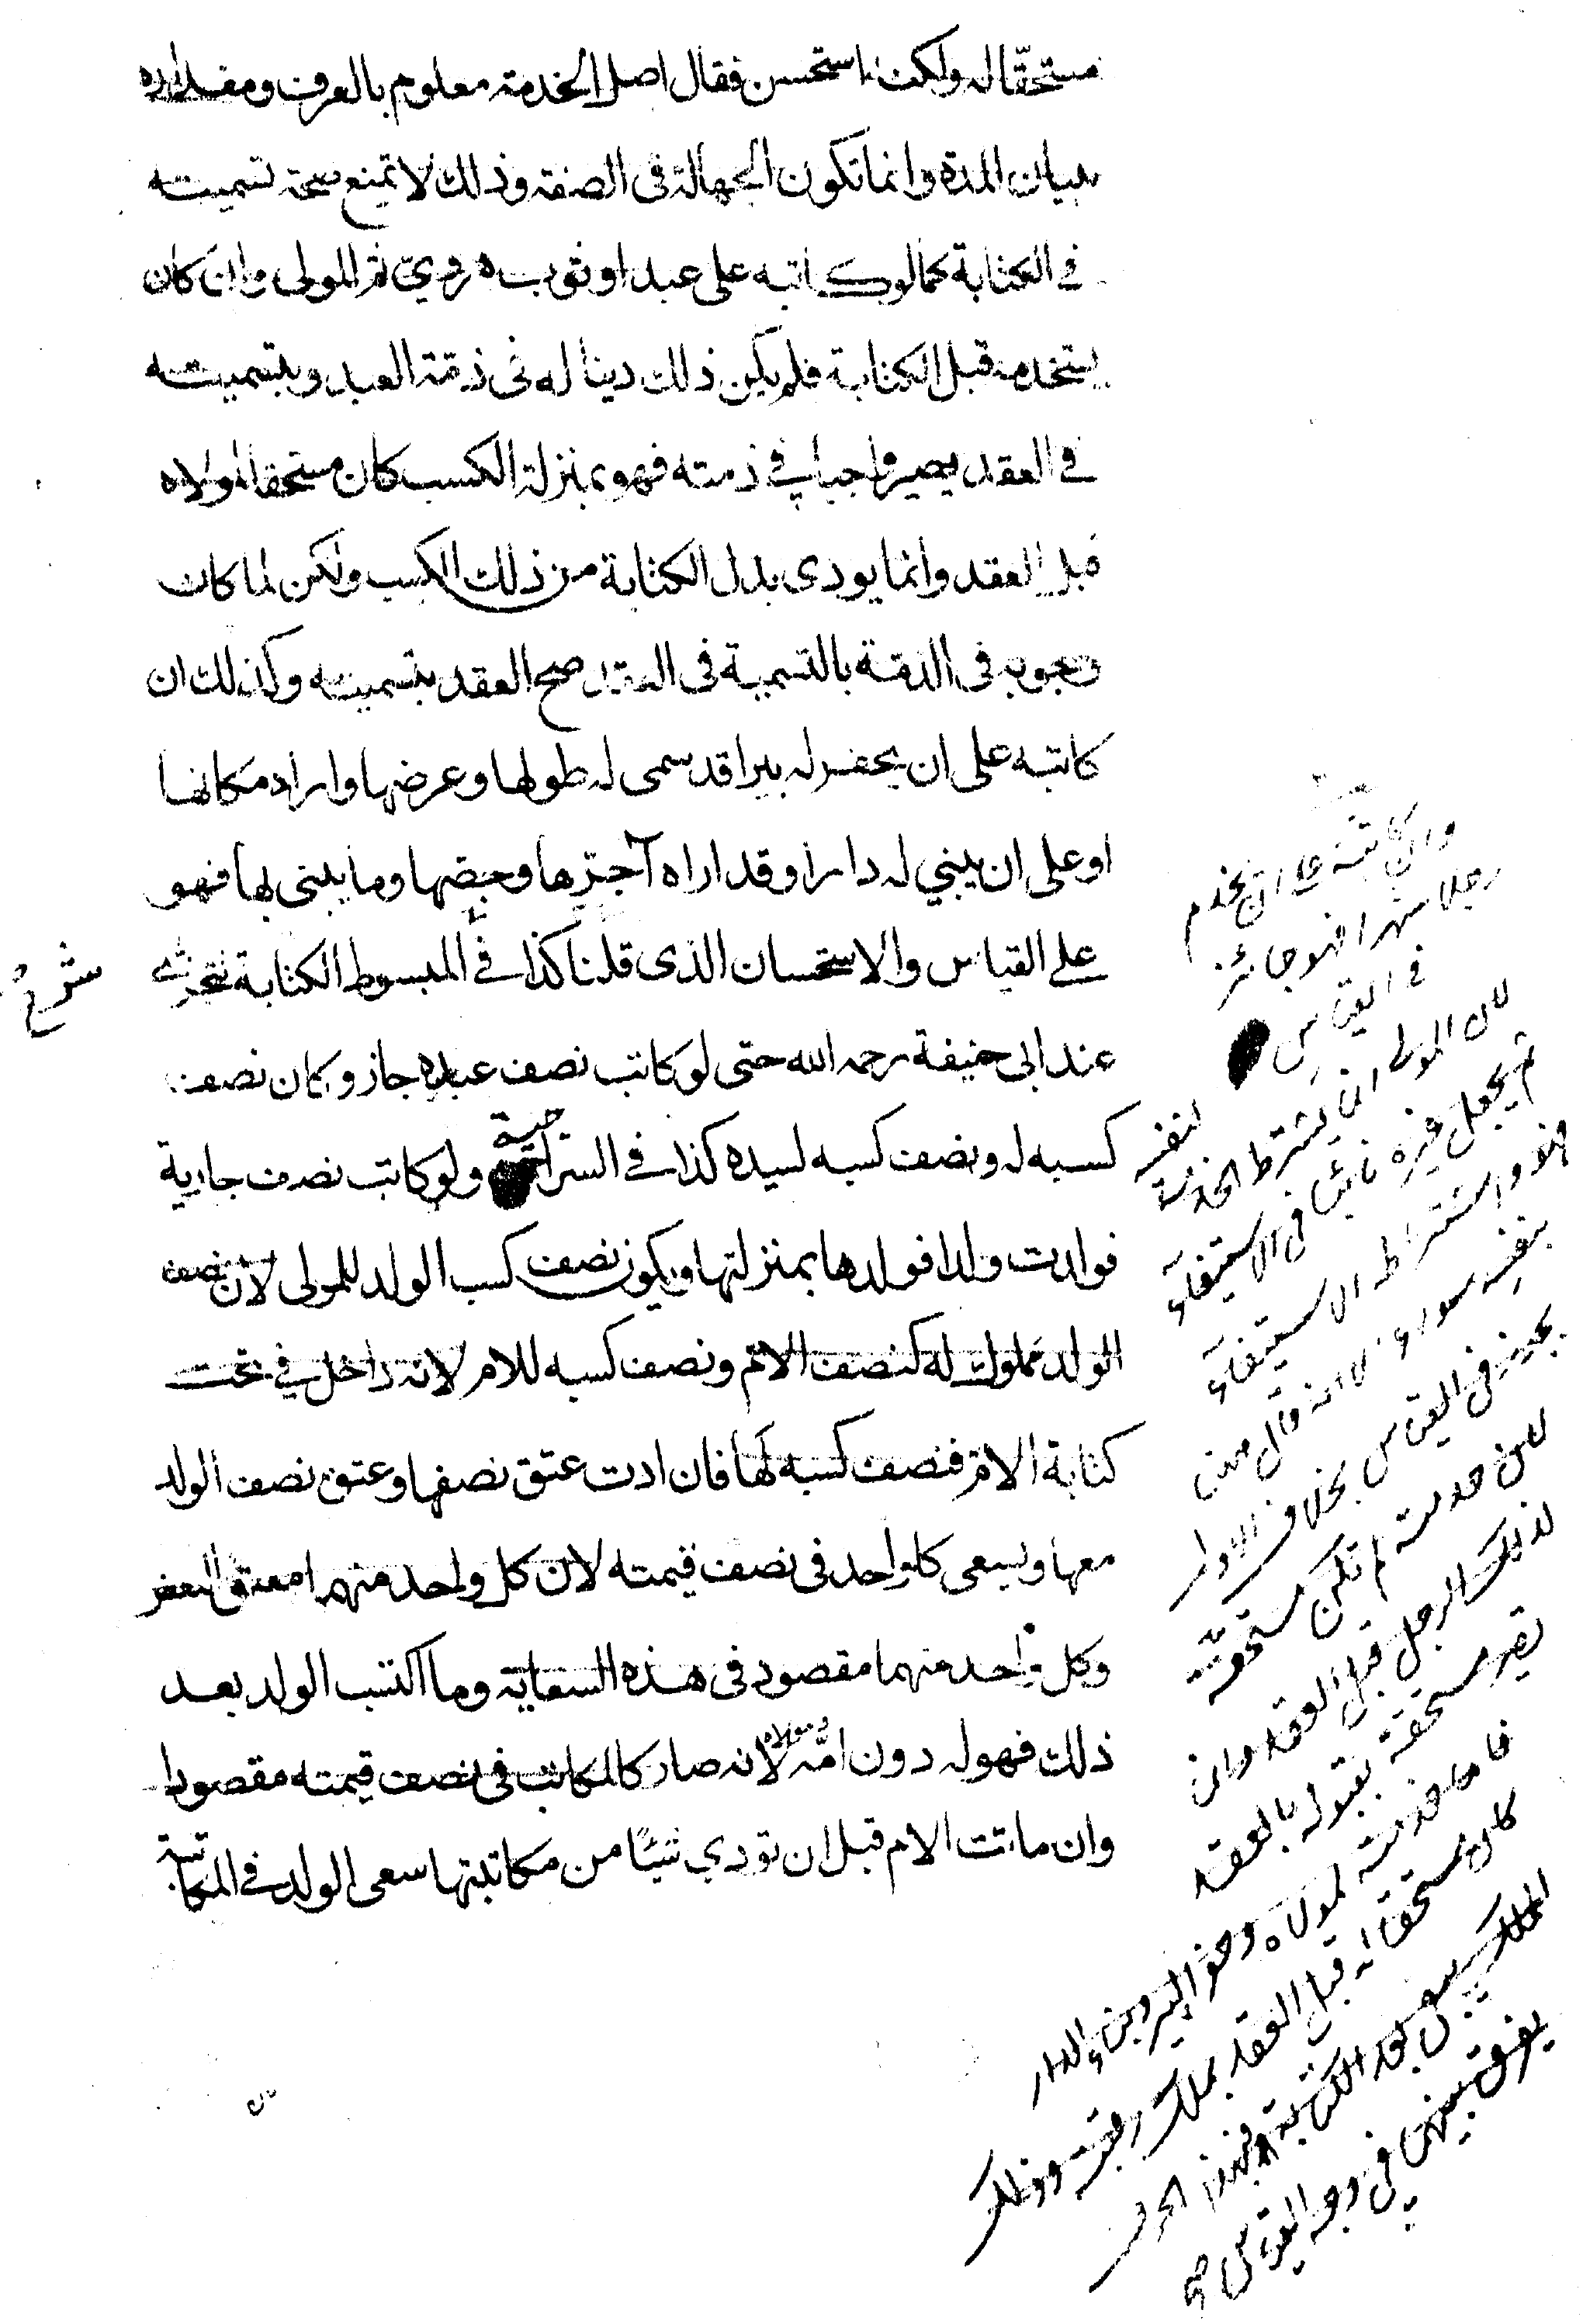 مستحقا له ولكن استحسن فقال اصل الخدمة معلوم بالعرف ومقداره
ببيان المدة وانما تكون الجهالة فى الصفة وذلك لا تمنع صحة تسميته
فى الكتابة كما لو كاتبه على عبد او ثوب هروي ثم المولى وان كان
يستخدمه قبل الكتابة فلم يكن ذلك دينا له فى ذمة العبد وبتسميته
فى العقد يصير واجبا فى ذمته فهو بمنزلة الكسب كان مستحقا لمولاه
قبل العقد وانما يودى بدل الكتابة من ذلك الكسب ولكن لما كان
وجوبه فى الذمة بالتسمية فى العقد صح العقد بتسميته وكذلك ان
كاتبه على ان يحفر له بيرا قد سمى له طولها وعرضها واراه مكانها
او على ان يبني له دارا وقد اراه آجرها وجصها وما يبنى بها فهو
على القياس والاستحسان الذى قلنا كذا فى المبسوط الكتابة تتجزئ
شرح
عند ابى حنيفة رحمه الله حتى لو كاتب نصف عبده جاز وكان نصف
كسبه له ونصف كسبه لسيده كذا فى السراجية ولو كاتب نصف جارية
فولدت ولدا فولدها بمنزلتها ويكون نصف كسب الولد للمولى لان نصف
الولد مملوك له كنصف الام ونصف كسبه للام لانه داخل في تحت
كتابة الام فنصف كسبه لها فان ادت عتق نصفها وعتق نصف الولد
معها ويسعى كل واحد فى نصف قيمته لان كل واحد منهما معتق البعض
وكل واحد منهما مقصود فى هذه السعاية وما اكتسب الولد بعد
ذلك فهو له دون امه ومولاه لانه صار كالمكاتب فى نصف قيمته مقصودا
وان ماتت الام قبل ان تودي شيئا من مكاتبتها سعى الولد فى المكاتبة
وان كاتبه على ان يخدم
رجلا شهرا فهو جائز
فى القياس
لان المولى انما يشترط الخدمة لنفسه
ثم يجعل غيره نائبا فى الاستيفاء
فهذا واشتراط الاستيفاء
بنفسه سواء الا انه قال هنا
يجوز فى القياس بخلاف الاول
لان خدمته لم تكن مستحقة
لذلك الرجل قبل العقد وانما
يصير مستحقة بقبوله بالعقد
فاما خدمته لمولاه وحفر البير وبناء الدار
كان مستحقا له قبل العقد بملك رقبته وذلك
الملك يبقى بعد الكتابة فبهذا الحرف
يفرق بينهما فى وجه القياس صح